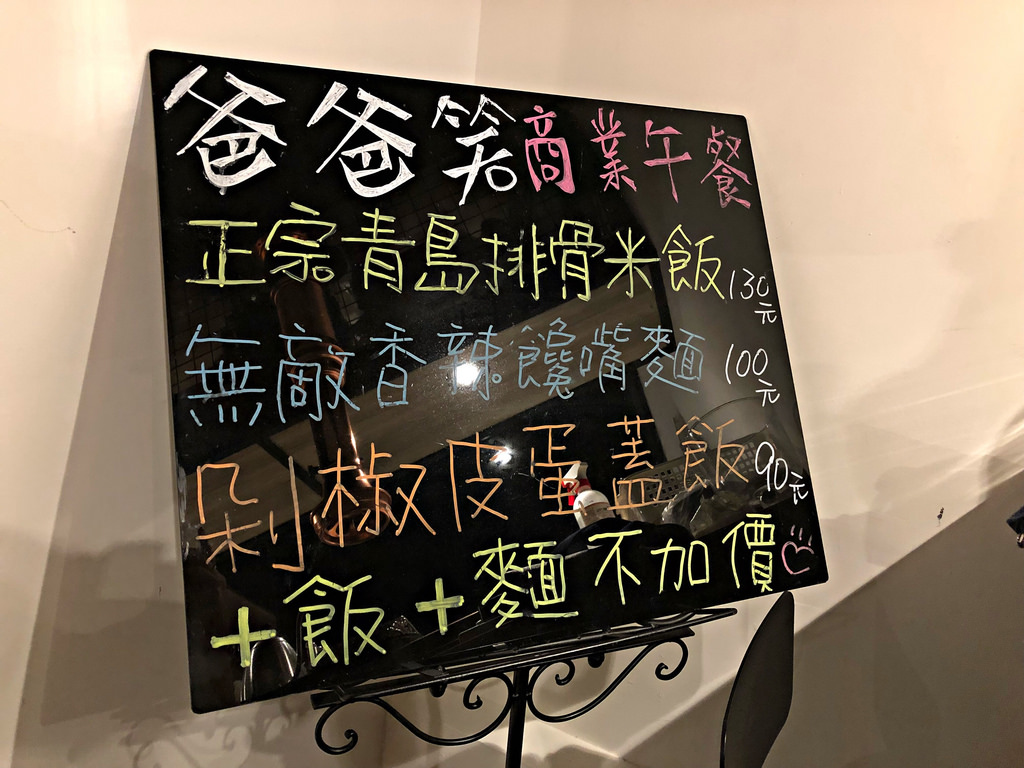 爸爸笑商業午餐
正宗青島排骨米飯130元
無敵香辣饞嘴麵 100元
剁椒皮蛋蓋飯90元
+飯+麵不加價